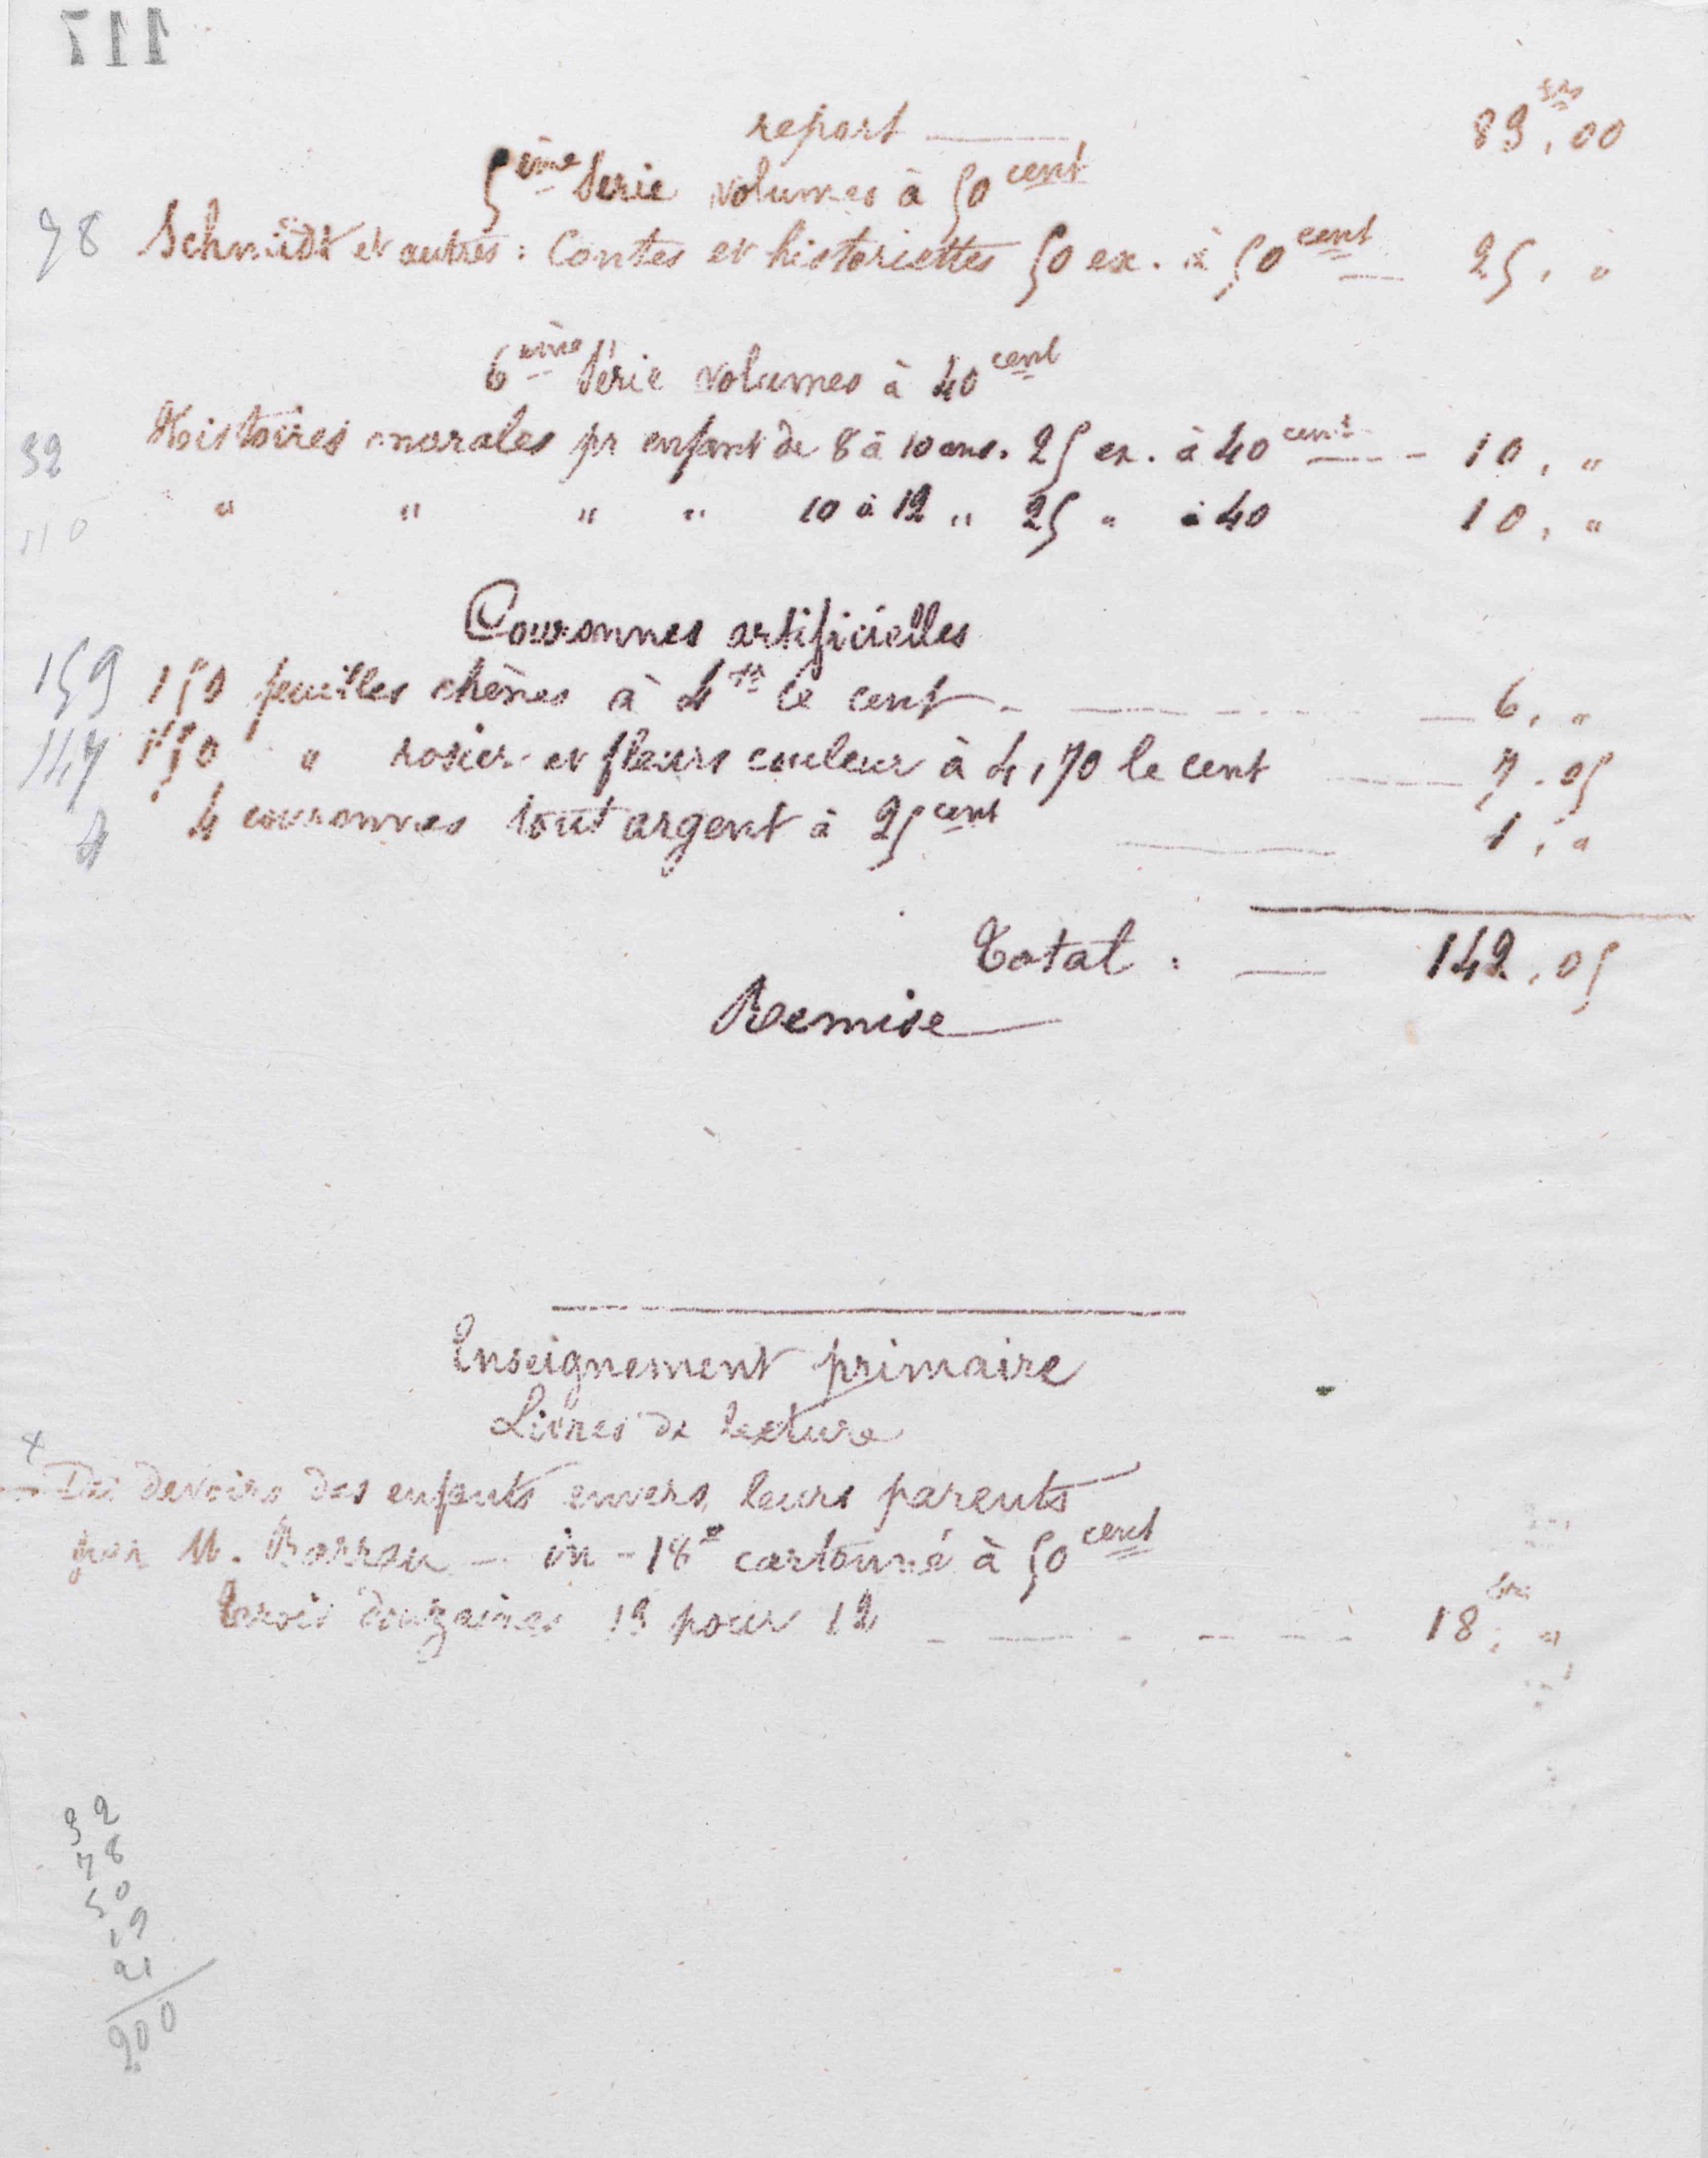 117
report — 83 frs, 00
5ème Serie volumes à 50 cent
78 Schmidt et autres : Contes et historiettes 50 ex. à 50 cent — 25, "
6ème Série volumes à 40 cent
32 Histoires morales pr enfant de 8 à 10 ans. 25 ex. à 40 cent --- 10, "
110 " " " " 10 à 12 " 25 " à 40 10, "
Couronnes artificielles
159 150 feuilles chênes à 4 fr le cent - — 6, "
147 150 " rosier et fleurs couleur à 4,70 le cent — 7.05
4 4 couronnes tout argent à 25 cent — 1, "
Total : — 142,05
Remise —
Enseignement primaire
Livres de lecture
x
— Des devoirs des enfants envers leurs parents
par M. Barrau — in-18° cartonné à 50 cent
trois douzaines 13 pour 12 - — - — - - 18 frs, "
32
78
50
19
21
200